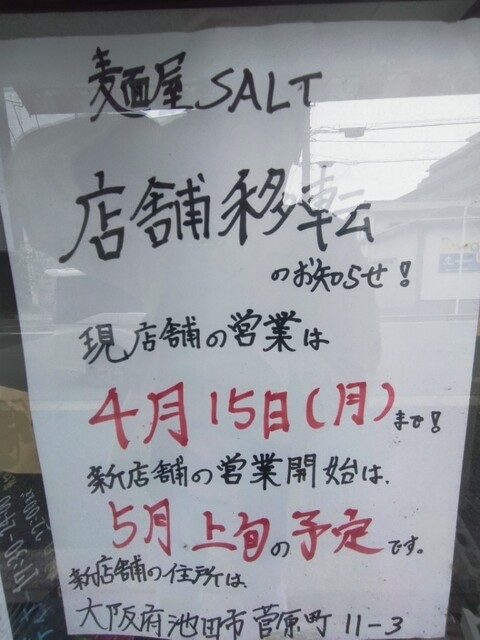 麺屋 SALT
店舗移転
のお知らせ!
現店舗の営業は
4月15日(月)まで!
新店舗の営業開始は、
5月上旬の予定です。
新店舗の住所は、
大阪府池田市菅原町 11-3